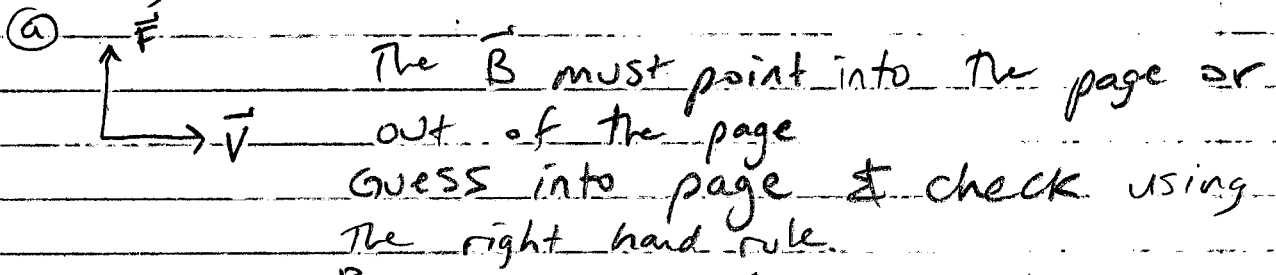 ⓐ F⃗
The B⃗ must point into the page or
out of the page
V⃗
Guess into page & check using
The right hand rule.